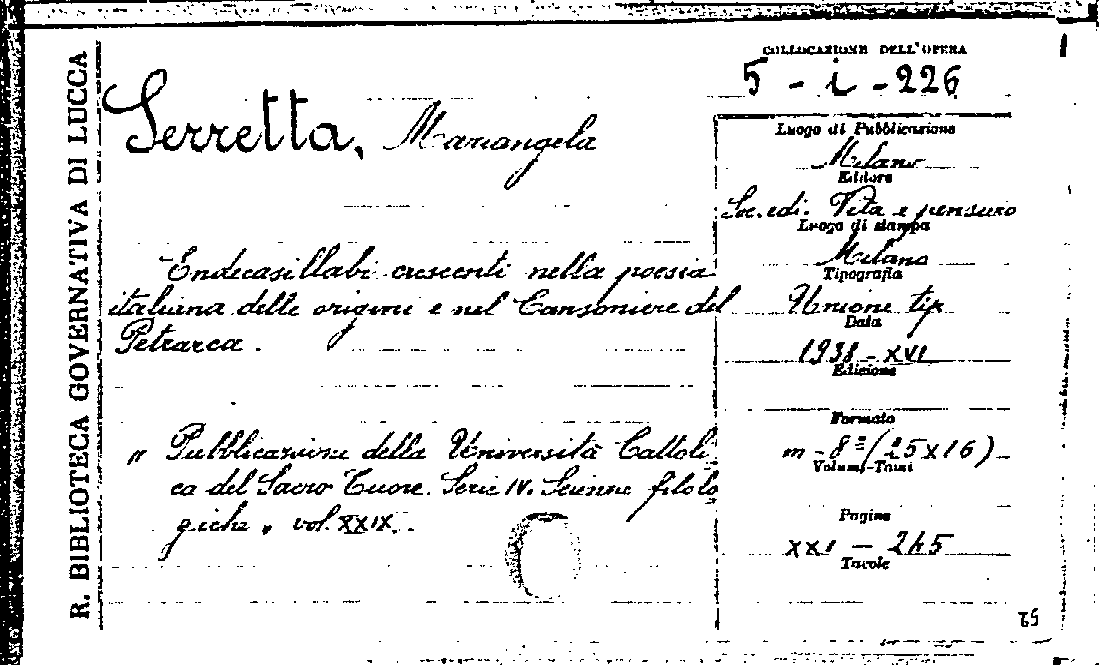 R. BIBLIOTECA GOVERNATIVA DI LUCCA
COLLOCAZIONE DELL'OPERA
5 - i - 226
Serretta, Mariangela
Endecasillabi crescenti nella poesia
italiana delle origini e nel Canzoniere del
Petrarca.
„ Pubblicazione della Università Cattoli
ca del Sacro Cuore. Serie IV. Scienze filolo
giche „ vol. XXIX.
Luogo di Pubblicazione
Milano
Editore
Soc. edi. Vita e pensiero
Luogo di stampa
Milano
Tipografia
Unione tip
Data
1938 - XVI
Edizione
Formato
in - 8º (25x16)
Volumi-Tomi
Pagine
XXI - 245
Tavole
52